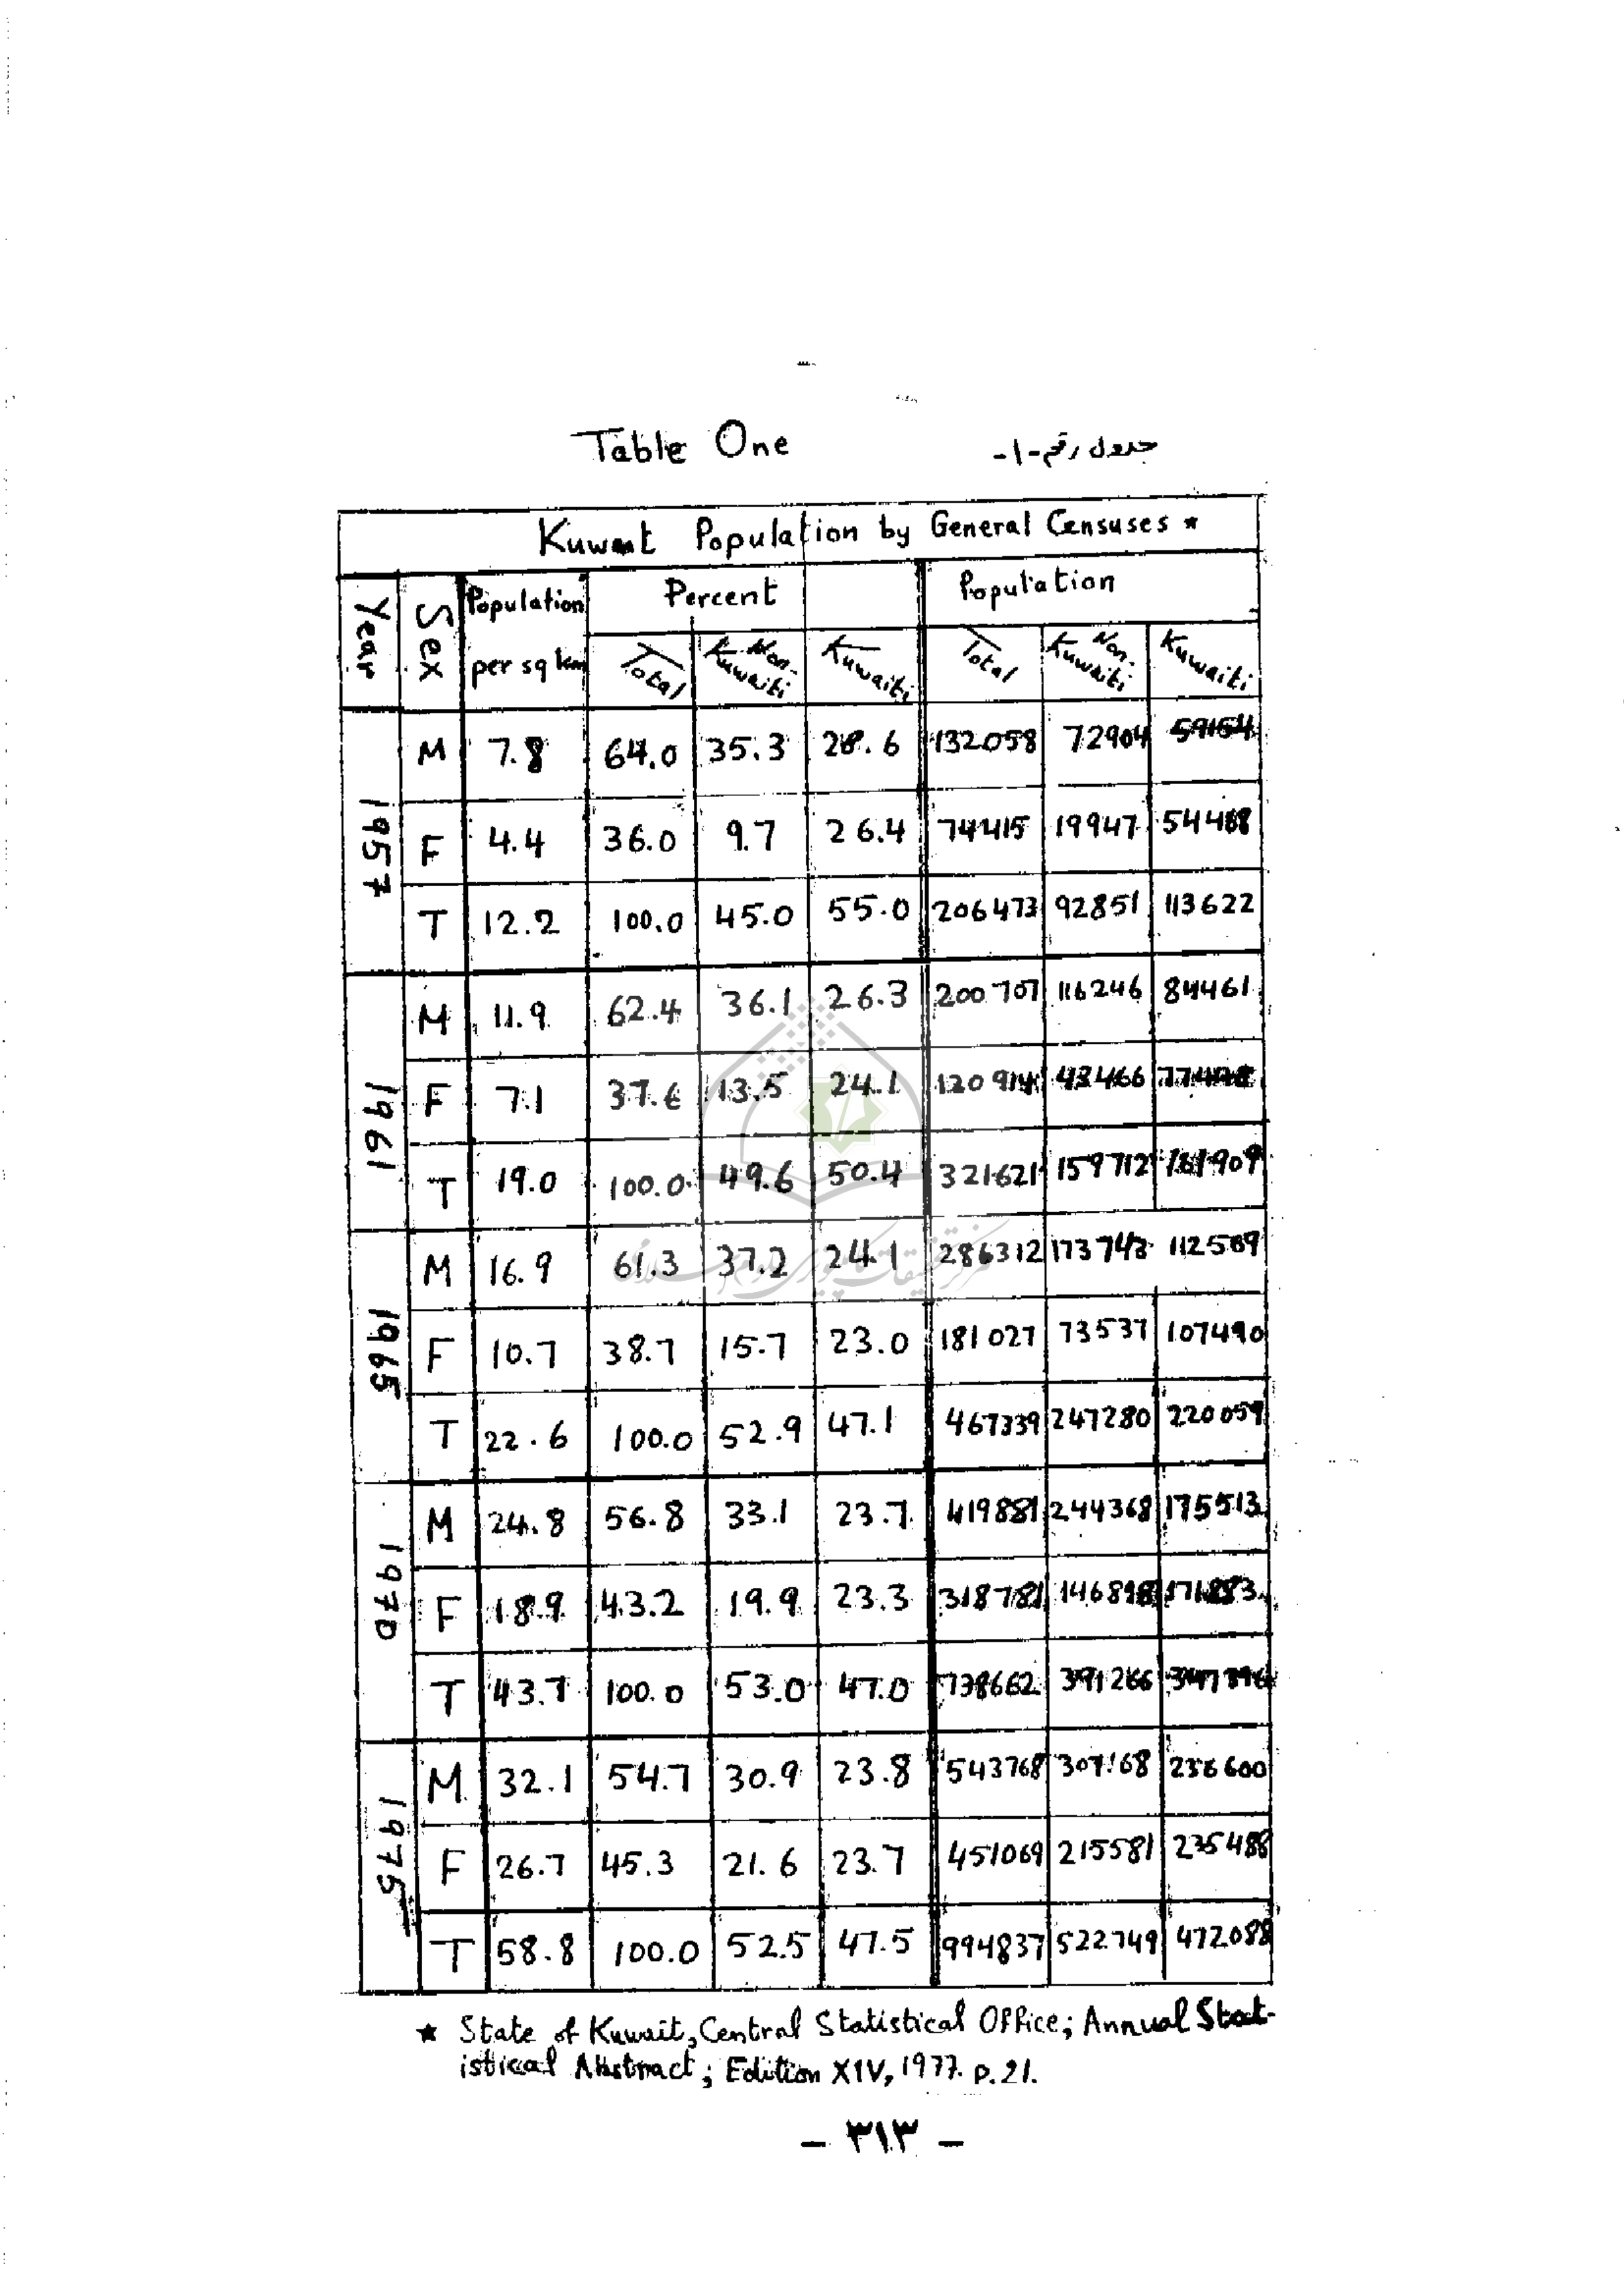 Table One
جدول رقم -١-
Kuwait Population by General Censuses *
Year Sex Population per sq km Percent Population
Total Non-Kuwaiti Kuwaiti Total Non-Kuwaiti Kuwaiti
1957
M 7.8 64.0 35.3 28.6 132058 72904 59154
F 4.4 36.0 9.7 26.4 74415 19947 54468
T 12.2 100.0 45.0 55.0 206473 92851 113622
1961
M 11.9 62.4 36.1 26.3 200707 116246 84461
F 7.1 37.6 13.5 24.1 120914 43466
T 19.0 100.0 49.6 50.4 321621 159712 161909
1965
M 16.9 61.3 37.2 24.1 286312 173743 112569
F 10.7 38.7 15.7 23.0 181027 73537 107490
T 22.6 100.0 52.9 47.1 467339 247280 220059
1970
M 24.8 56.8 33.1 23.7 419881 244368 175513
F 18.9 43.2 19.9 23.3 318781 146898 171883
T 43.7 100.0 53.0 47.0 738662 391266 347396
1975
M 32.1 54.7 30.9 23.8 543768 307168 236600
F 26.7 45.3 21.6 23.7 451069 215581 235488
T 58.8 100.0 52.5 47.5 994837 522749 472088
★ State of Kuwait, Central Statistical Office; Annual Stat-
istical Abstract; Edition XIV, 1977. p.21.
- ٣١٣ -